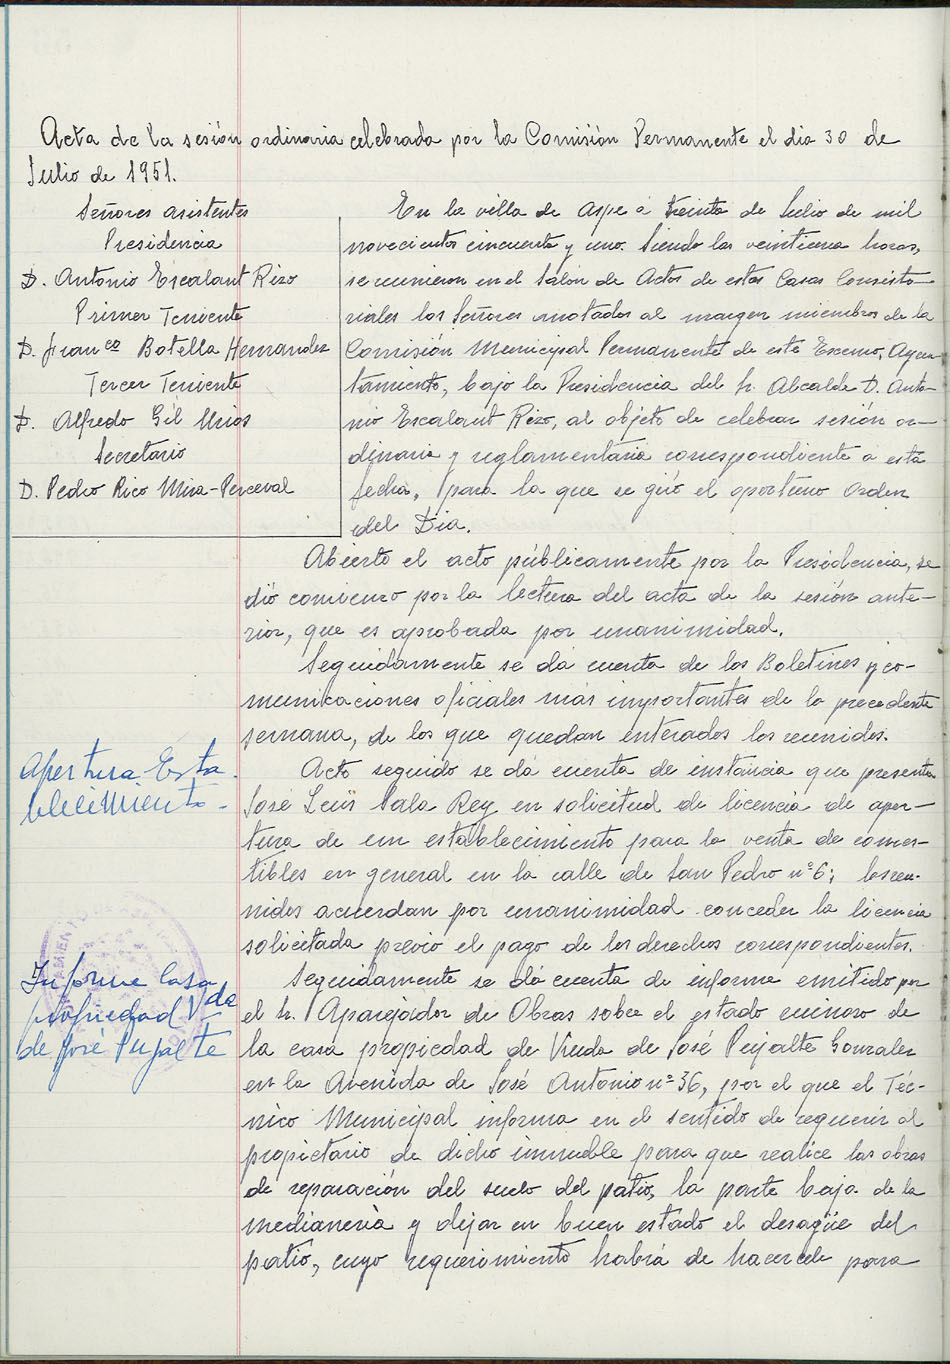 Acta de la sesión ordinaria celebrada por la Comisión Permanente el dia 30 de
Julio de 1951.
Señores asistentes
Presidencia
D. Antonio Escalant Rizo
Primer Teniente
D. Franco Botella Hernandez
Tercer Teniente
D. Alfredo Gil Urios
Secretario
D. Pedro Rico Mira-Perceval
En la villa de Aspe a treinta de Julio de mil
novecientos cincuenta y uno. Siendo las veintiuna horas,
se reunieron en el Salón de Actos de estas Casas Consisto-
riales los Señores anotados al margen miembros de la
Comisión Municipal Permanente de este Excmo, Ayun-
tamiento, bajo la Presidencia del Sr. Alcalde D. Anto-
nio Escalant Rizo, al objeto de celebrar sesión or-
dinaria y reglamentaria correspondiente a esta
fecha, para la que se giró el oportuno Orden
del Dia.
Abierto el acto públicamente por la Presidencia, se
dió comienzo por la lectura del acta de la sesión ante-
rior, que es aprobada por unanimidad.
Seguidamente se dá cuenta de los Boletines y co-
municaciones oficiales más importantes de la precedente
semana, de los que quedan enterados los reunidos.
Apertura Esta-
blecimiento-
Acto seguido se dá cuenta de instancia que presenta
José Luis Sala Rey en solicitud de licencia de aper-
tura de un establecimiento para la venta de comes-
tibles en general en la calle de San Pedro nº 6; los reu-
nidos acuerdan por unanimidad conceder la licencia
solicitada previo el pago de los derechos correspondientes.
Informe Casa
propiedad Vda
de José Pujalte
Seguidamente se dá cuenta de informe emitido por
el Sr. Aparejador de Obras sobre el estado ruinoso de
la casa propiedad de Viuda de José Pujalte Gonzalez
en la Avenida de José Antonio nº 36, por el que el Téc-
nico Municipal informa en el sentido de requerir al
propietario de dicho inmueble para que realice las obras
de reparación del suelo del patio, la parte baja de la
medianería y dejar en buen estado el desagüe del
patio, cuyo requerimiento habrá de hacersele para